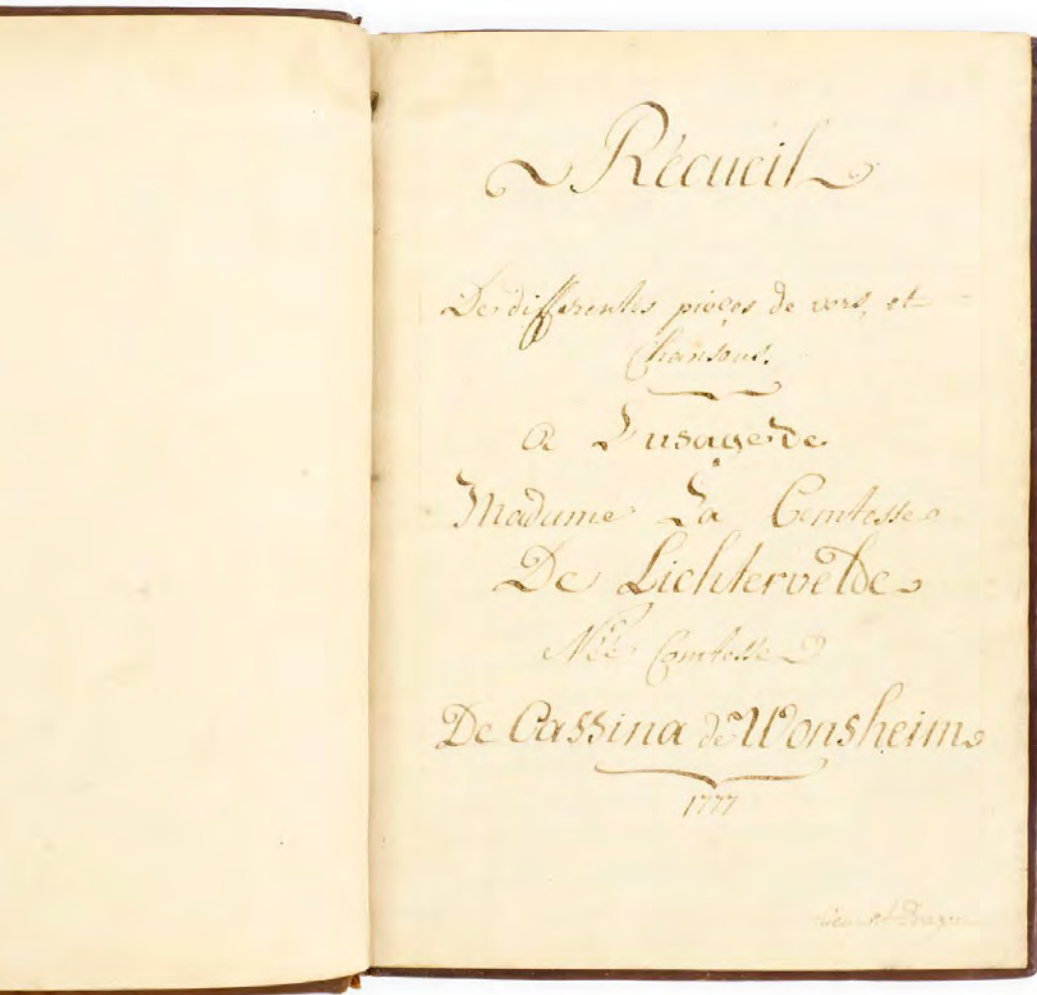 Récueil
De differentes pièces de vers, et
Chansons.
A L'usage de
Madame La Comtesse
De Lichtervelde
Née Comtesse
De Cassina de Wonsheim
1777